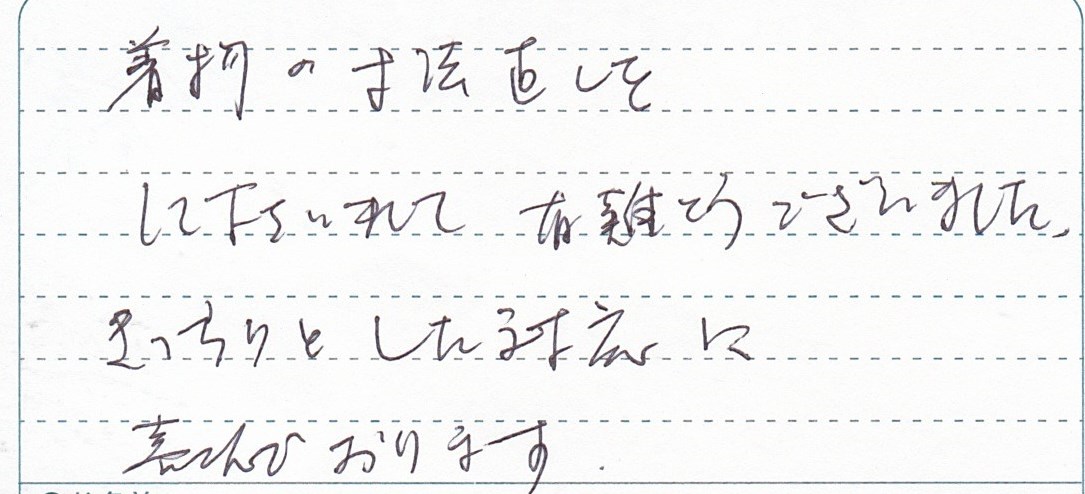 着物の寸法直しを
して下さいまして有難とうございました。
きっちりとした対応に
喜んびおります.